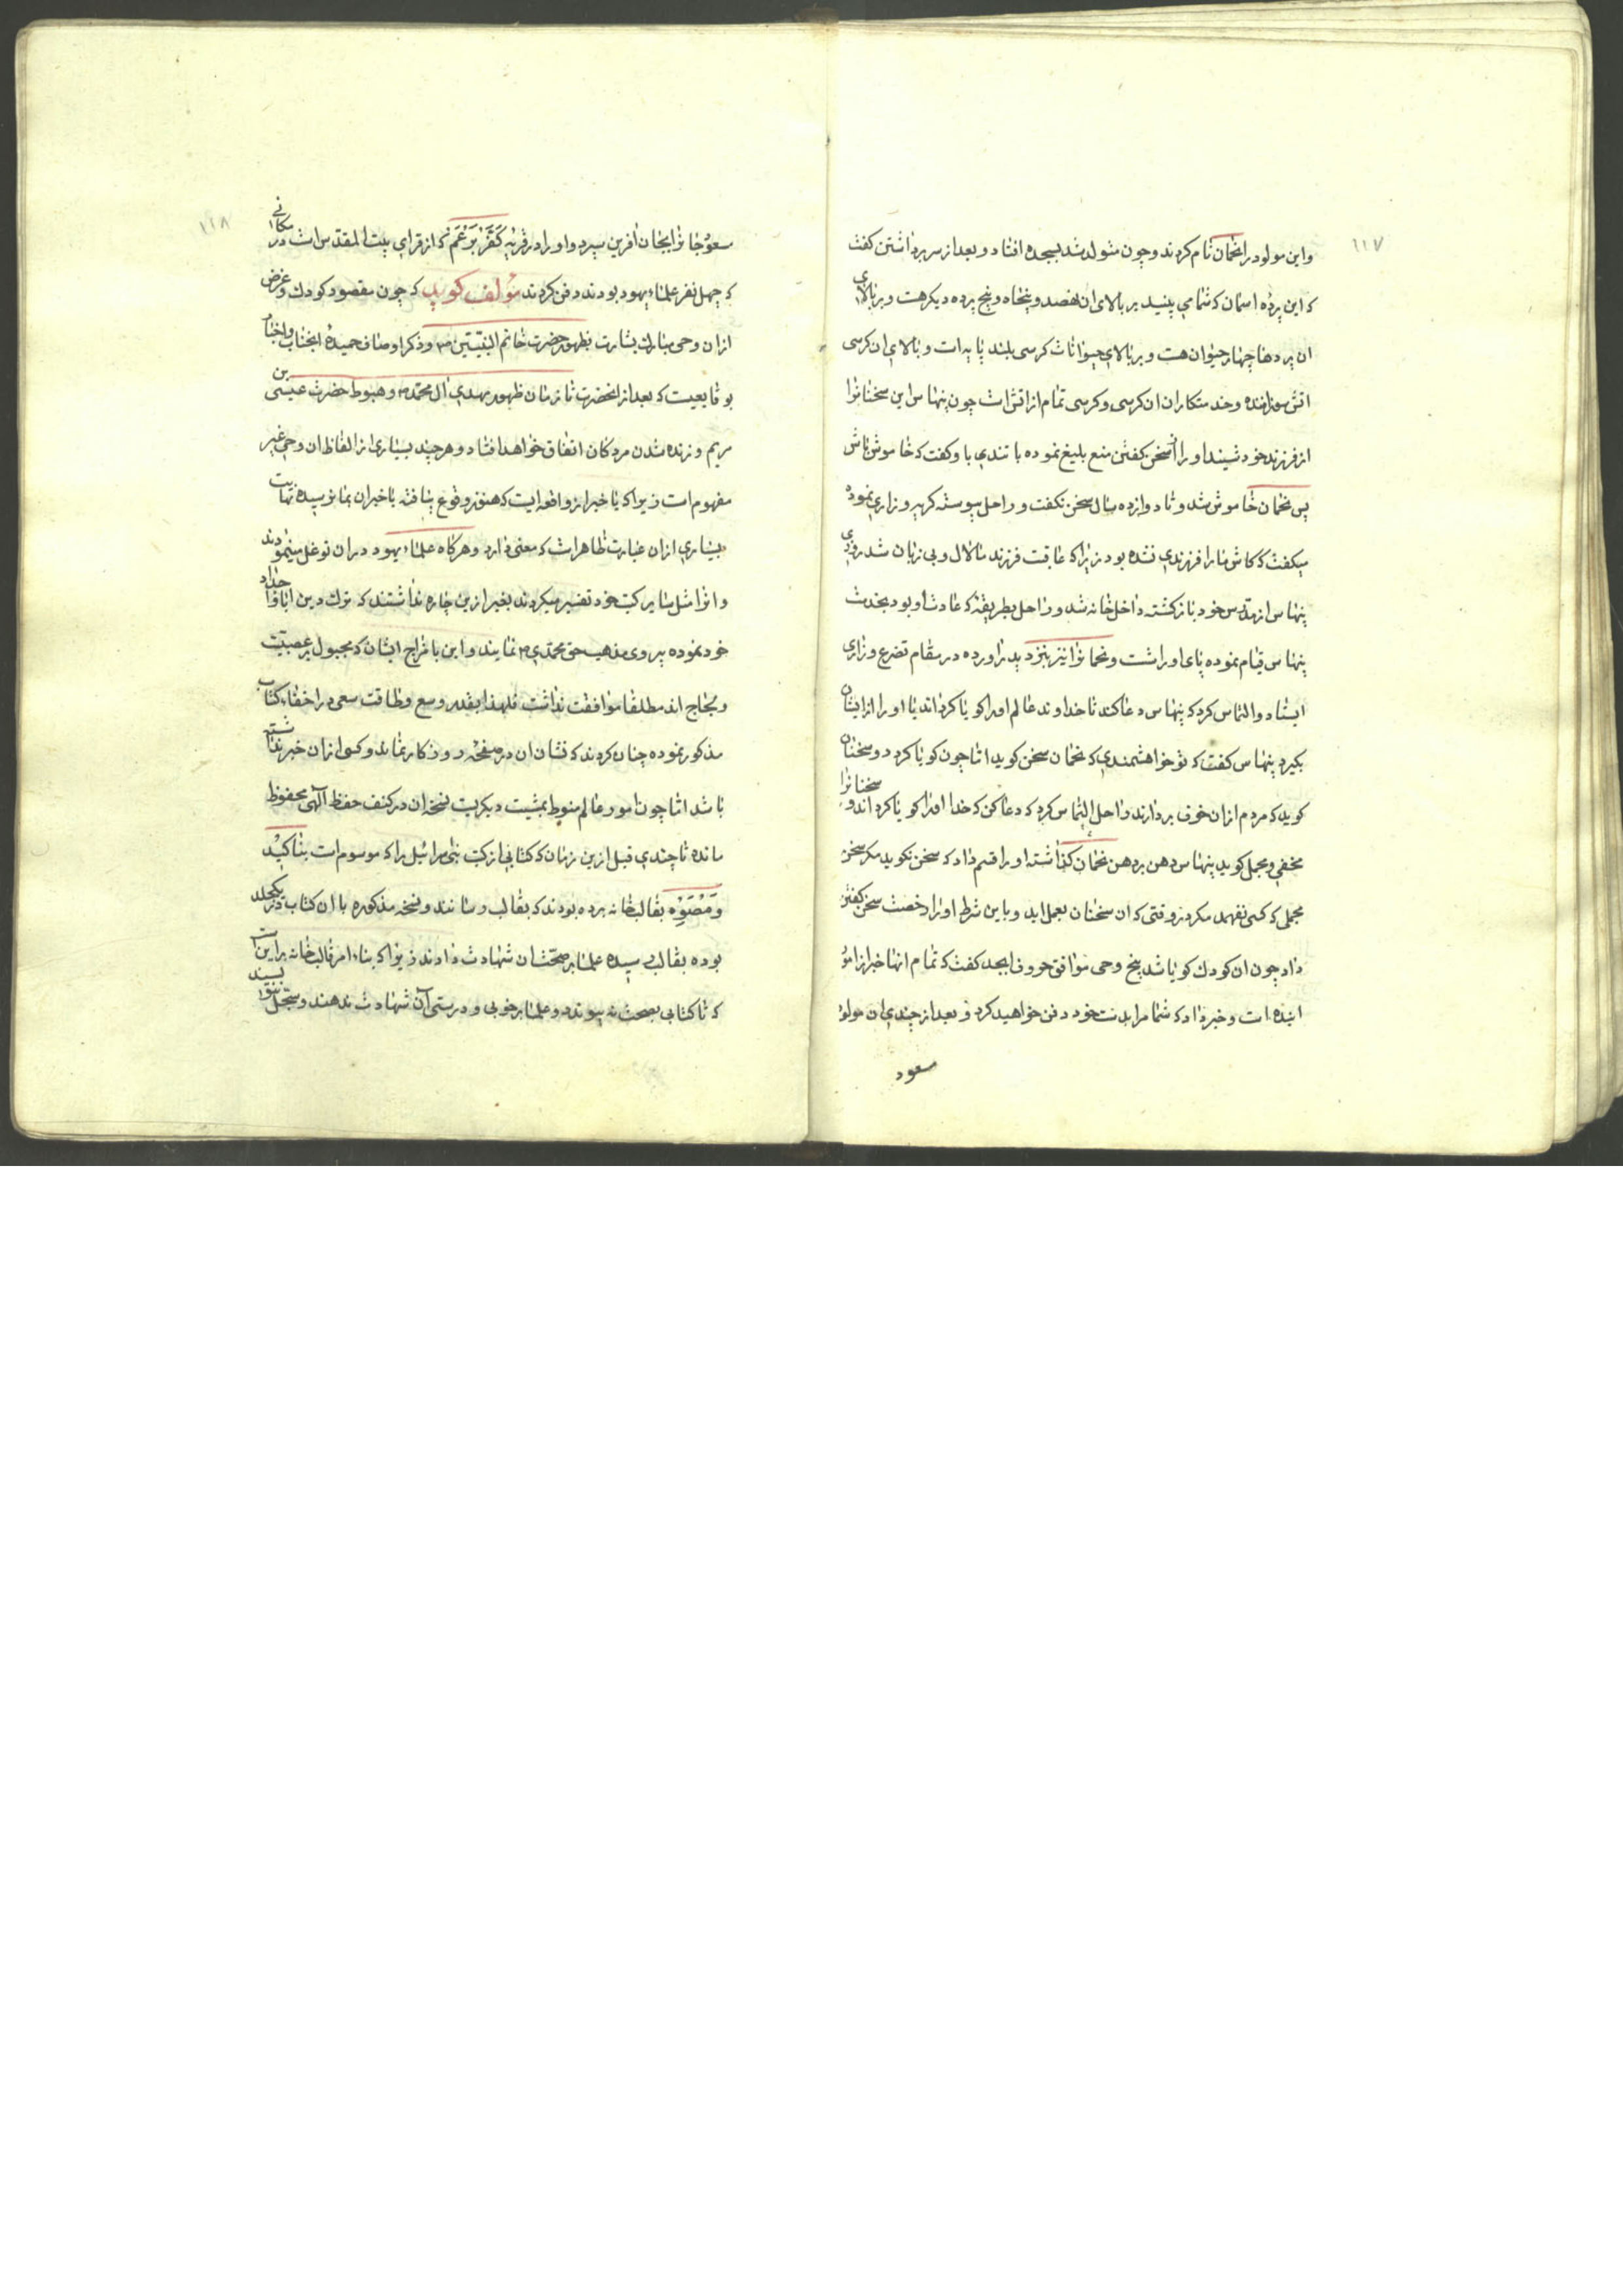 ۱۱۷
واین مولود را نحمان نام کردند و چون متولد شد بسجده افتاد و بعد از سر برداشتن کفت
که این پردهٔ اسمان که شما می بینید بر بالای ان نهصد و پنجاه و پنج پرده دیکر هست و بر بالای
ان پردها چهار حیوان هست و بر بالای حیوانات کرسی بلند پایه است و بالای ان کرسی
اتش سوزاننده و خدمتکاران ان کرسی و کرسی تمام از اتش است چون پنهاس این سخنانرا
از فرزند خود شنید او را از سخن کفتن منع بلیغ نموده با تندی باو کفت که خاموش باش
پس نحمان خاموش شد و تا دوازده سال سخن نکفت و راحل پیوسته کریه و زاری نموده
میکفت که کاش ما را فرزندی نشده بود زیرا که عاقبت فرزند ما لال و بی زبان شد روزی
پنهاس از مدرس خود باز کشته داخل خانه شد و راحل بطریقهٔ که عادت او بود بخدمت
پنهاس قیام نموده پای او را شست و نحمانرا نیز بنزد پدر اورده در مقام تضرع و زاری
ایستاد و التماس کرد که پنهاس دعا کند تا خداوند عالم اورا کویا کرداند یا او را از ایشان
بکیرد پنهاس کفت که تو خواهشمندی که نحمان سخن کوید اما چون کویا کردد سخنان
کوید که مردم از ان خوف بردارند و راحل التماس کرد که دعا کن که خدا اورا کویا کرداند و سخنانرا
مخفی و مجمل کوید پنهاس دهن بر دهن نحمان کذاشته او را قسم داد که سخن نکوید مکر سخن
مجملی که کسی نفهمد مکر در وقتی که ان سخنان بعمل اید و باین شرط او را رخصت سخن کفتن
داد چون ان کودك کویا شد پنج وحی موافق حروف ابجد کفت که تمام انها خبر از امور
اینده است و خبر داد که شما مرا بدست خود دفن خواهید کرد و بعد از چندی ان مولود
مسعود
۱۱۸
مسعود جانرا بجان افرین سپرد و او را در قریه کفر برعم که از قرای بیت المقدس است در مکانی
که چهل نفر علماء یهود بودند دفن کردند مؤلف کوید که چون مقصود کودك و غرض
از ان وحی مبارك بشارت بظهور حضرت خاتم النبیین ص و ذکر اوصاف حمیدهٔ انجناب و اخبار
بوقایعیست که بعد از انحضرت تا زمان ظهور مهدی ال محمد ص و هبوط حضرت عیسی بن
مریم و زنده شدن مردکان اتفاق خواهد افتاد و هر چند بسیاری از الفاظ ان وحی غیر
مفهوم است زیرا که یا خبر از واقعه ایست که هنوز وقوع نیافته یا خبر ان بما نرسیده نهایت
بسیاری از ان عبارت ظاهر است که معنی دارد و هرکاه علماء یهود در ان توغل مینمودند
و انرا مثل سایر کتب خود تفسیر میکردند بغیر ازین چاره نداشتند که ترك دین ابا و اجداد
خود نموده پیروی مذهب حق محمدی ص نمایند و این با مزاج ایشان که مجبول بر عصبیت
و لجاج اند مطلقا موافقت نداشت فلهذا بقدر وسع و طاقت سعی در اخفاء کتاب
مذکور نموده چنان کردند که نشان ان در صفحهٔ روزکار نماند و کسی از ان خبر نداشته
باشد اما چون امور عالم منوط بمشیت دیکریست نسخهٔ ان در کنف حفظ الهی محفوظ
مانده تا چندی قبل ازین زمان که کتابی از کتب بنی اسرائیل را که موسوم است بناکید
ومصوه بقالبخانه برده بودند که بقالب رسانند و نسخه مذکوره با ان کتاب در یکجلد
بوده بقالب رسیده علما بر صحت ان شهادت دادند زیرا که بناء امر قالب خانه بر اینست
که تا کتابی بصحت نه پیوندد و علما بر خوبی و درستی آن شهادت ندهند و سجل ننویسند